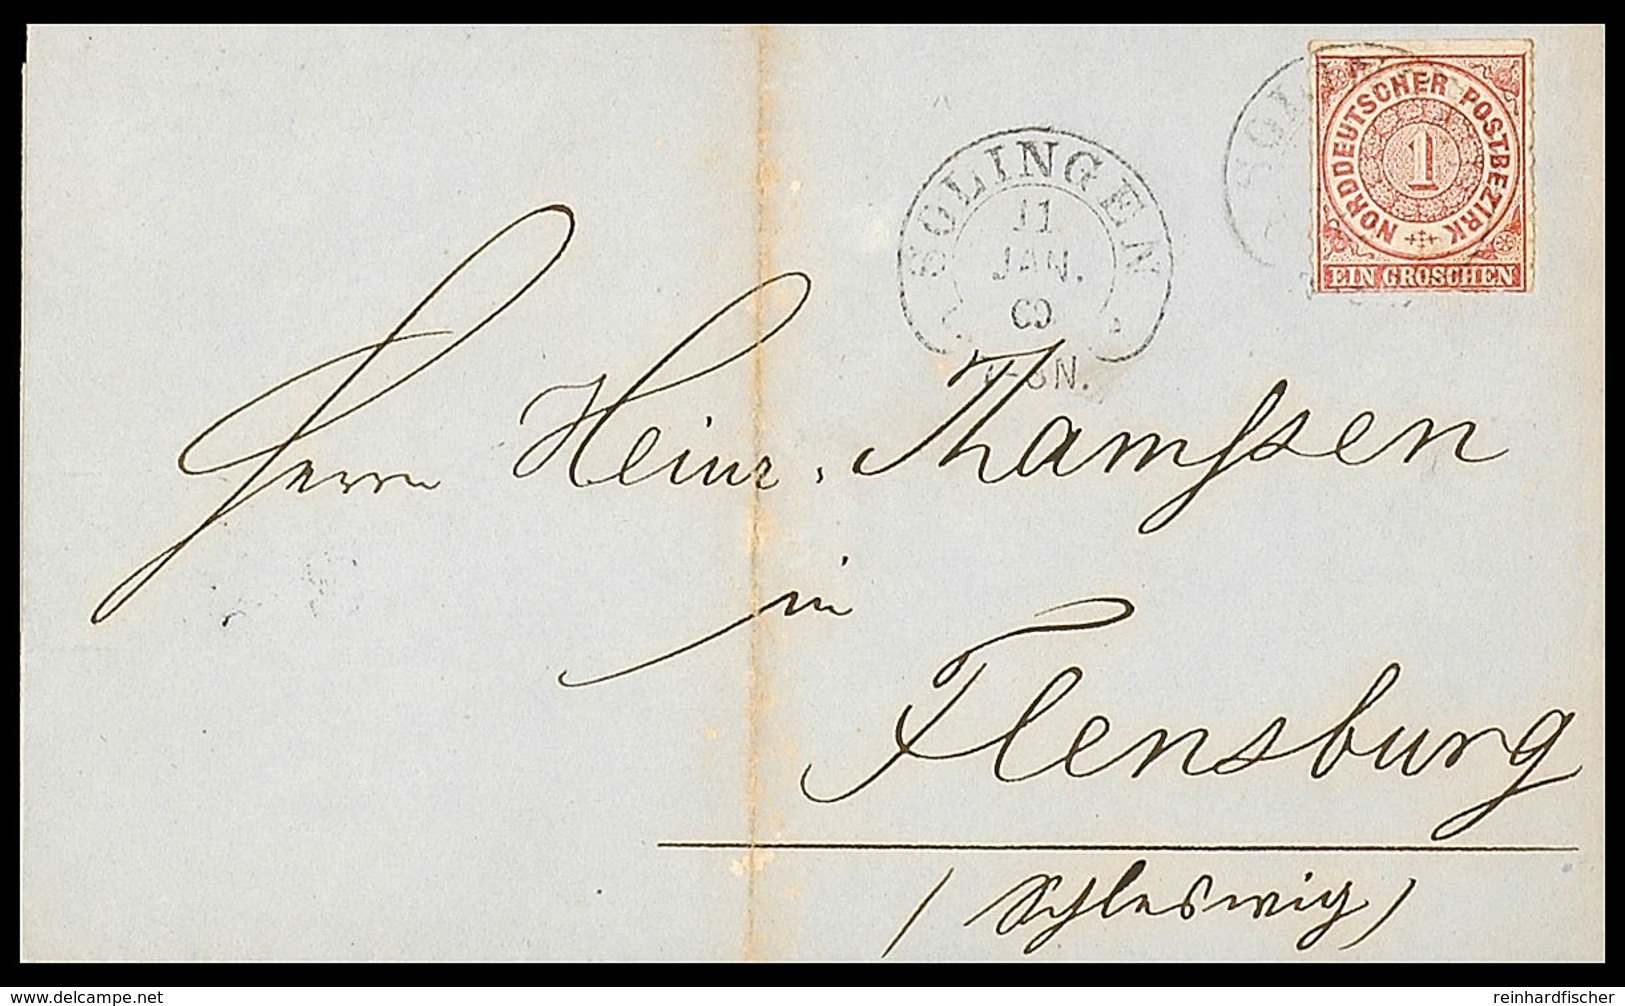 NORDDEUTSCHER POSTBEZIRK
1
EIN GROSCHEN
SOLINGEN
11
JAN.
Herrn Heinr. Thamssen
in
Flensburg
(Schleswig)
delcampe.net
reinhardfischer